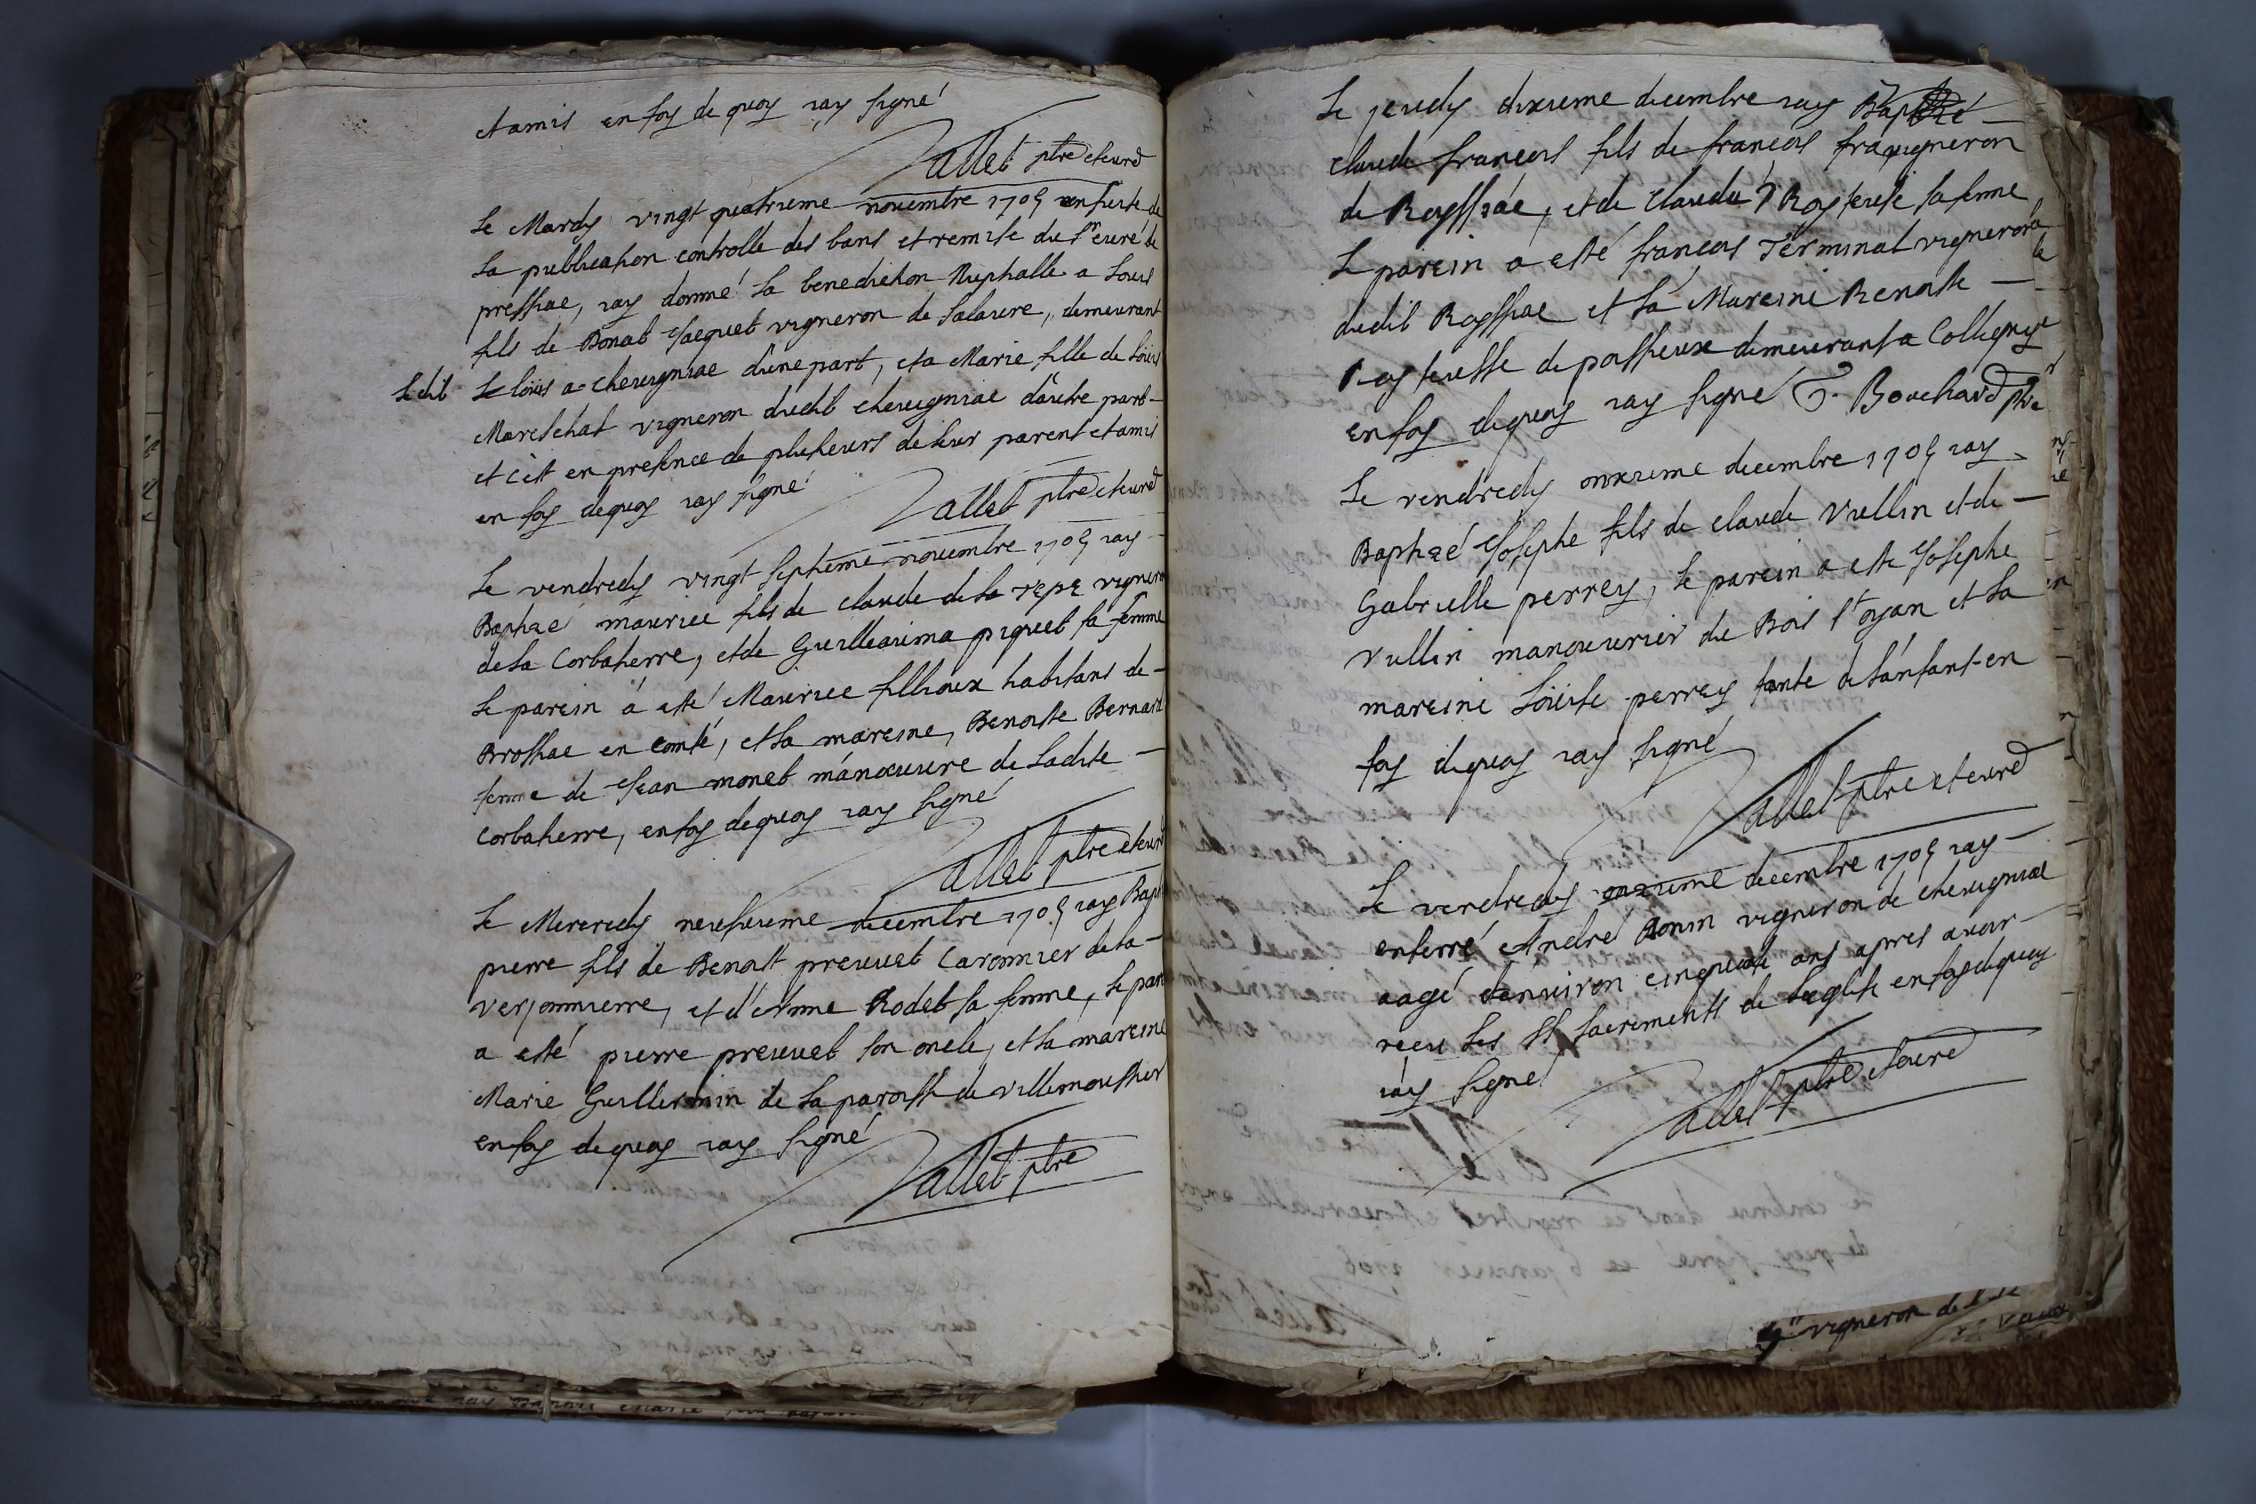 et amis en foy de quoy iay signé
Vallet ptre et curé
Le Mardy vingt quatrieme novembre 1705 en suite de
la publication controlle des bans et remise du Sr curé de
pressiac, iay donné la benediction Nuptialle a Louis
fils de Benoit Jacquet vigneron de Salavre, demeurant
Ledit
Le loüis a chevigniac d'une part, et a Marie fille de Loüis
Mareschal vigneron dudit chevigniac d'autre part
et c'est en presence de plusieurs de leur parent et amis
en foy dequoy iay signé
Vallet ptre et curé
Le vendredy vingt septieme novembre 1705 iay
Baptizé maurice fils de claude de la vigneron
de la Corbatierre, et de Guilleaima piquet sa femme
Le parein á esté Maurice fillioux habitans de
Brossiac en comté, et la mareine, Benoite Bernard
femme de Jean monet manoeuvre de Ladite
Corbatierre, en foy dequoy iay signé
Vallet ptre et curé
Le Mercredy neufieme decembre 1705 iay Bapt
pierre fils de Benoit preuvet Caronnier de la
verjonnierre, et d'Anne Rodet sa femme, le parein
a esté pierre preuvet son oncle, et la mareine
Marie Guillermin de la paroisse de villemoustier
en foy dequoy iay signé
Vallet ptre
Le jeudy dixieme decembre iay Baptizé
claude francois fils de francois fra vigneron
de Roissiac, et de Clauda Roysseuse sa femme
Le parein a esté francois Terminat vigneron
dudit Roissiac et la Mareine Benoite
Roysseusse de demeurant a Colligny
en foy dequoy iay signé Bouchard ptre
Le vendredy onzieme decembre 1705 iay
Baptizé Josephe fils de claude Vullin et de
Gabrielle perrey, le parein a este Josephe
Vullin manoeuvrier du Bois St oyan et la
mareine Loüise perrey tante de l'anfant en
foy dequoy iay signé
Vallet ptre et curé
Le vendredy onzieme decembre 1705 iay
enterré André Bonin vigneron de chevigniac
aagé d'anviron cinquante ans apres avoir
receu les St sacrements de Leglise en foy dequoy
iay signé
Vallet ptre et curé
vigneron de